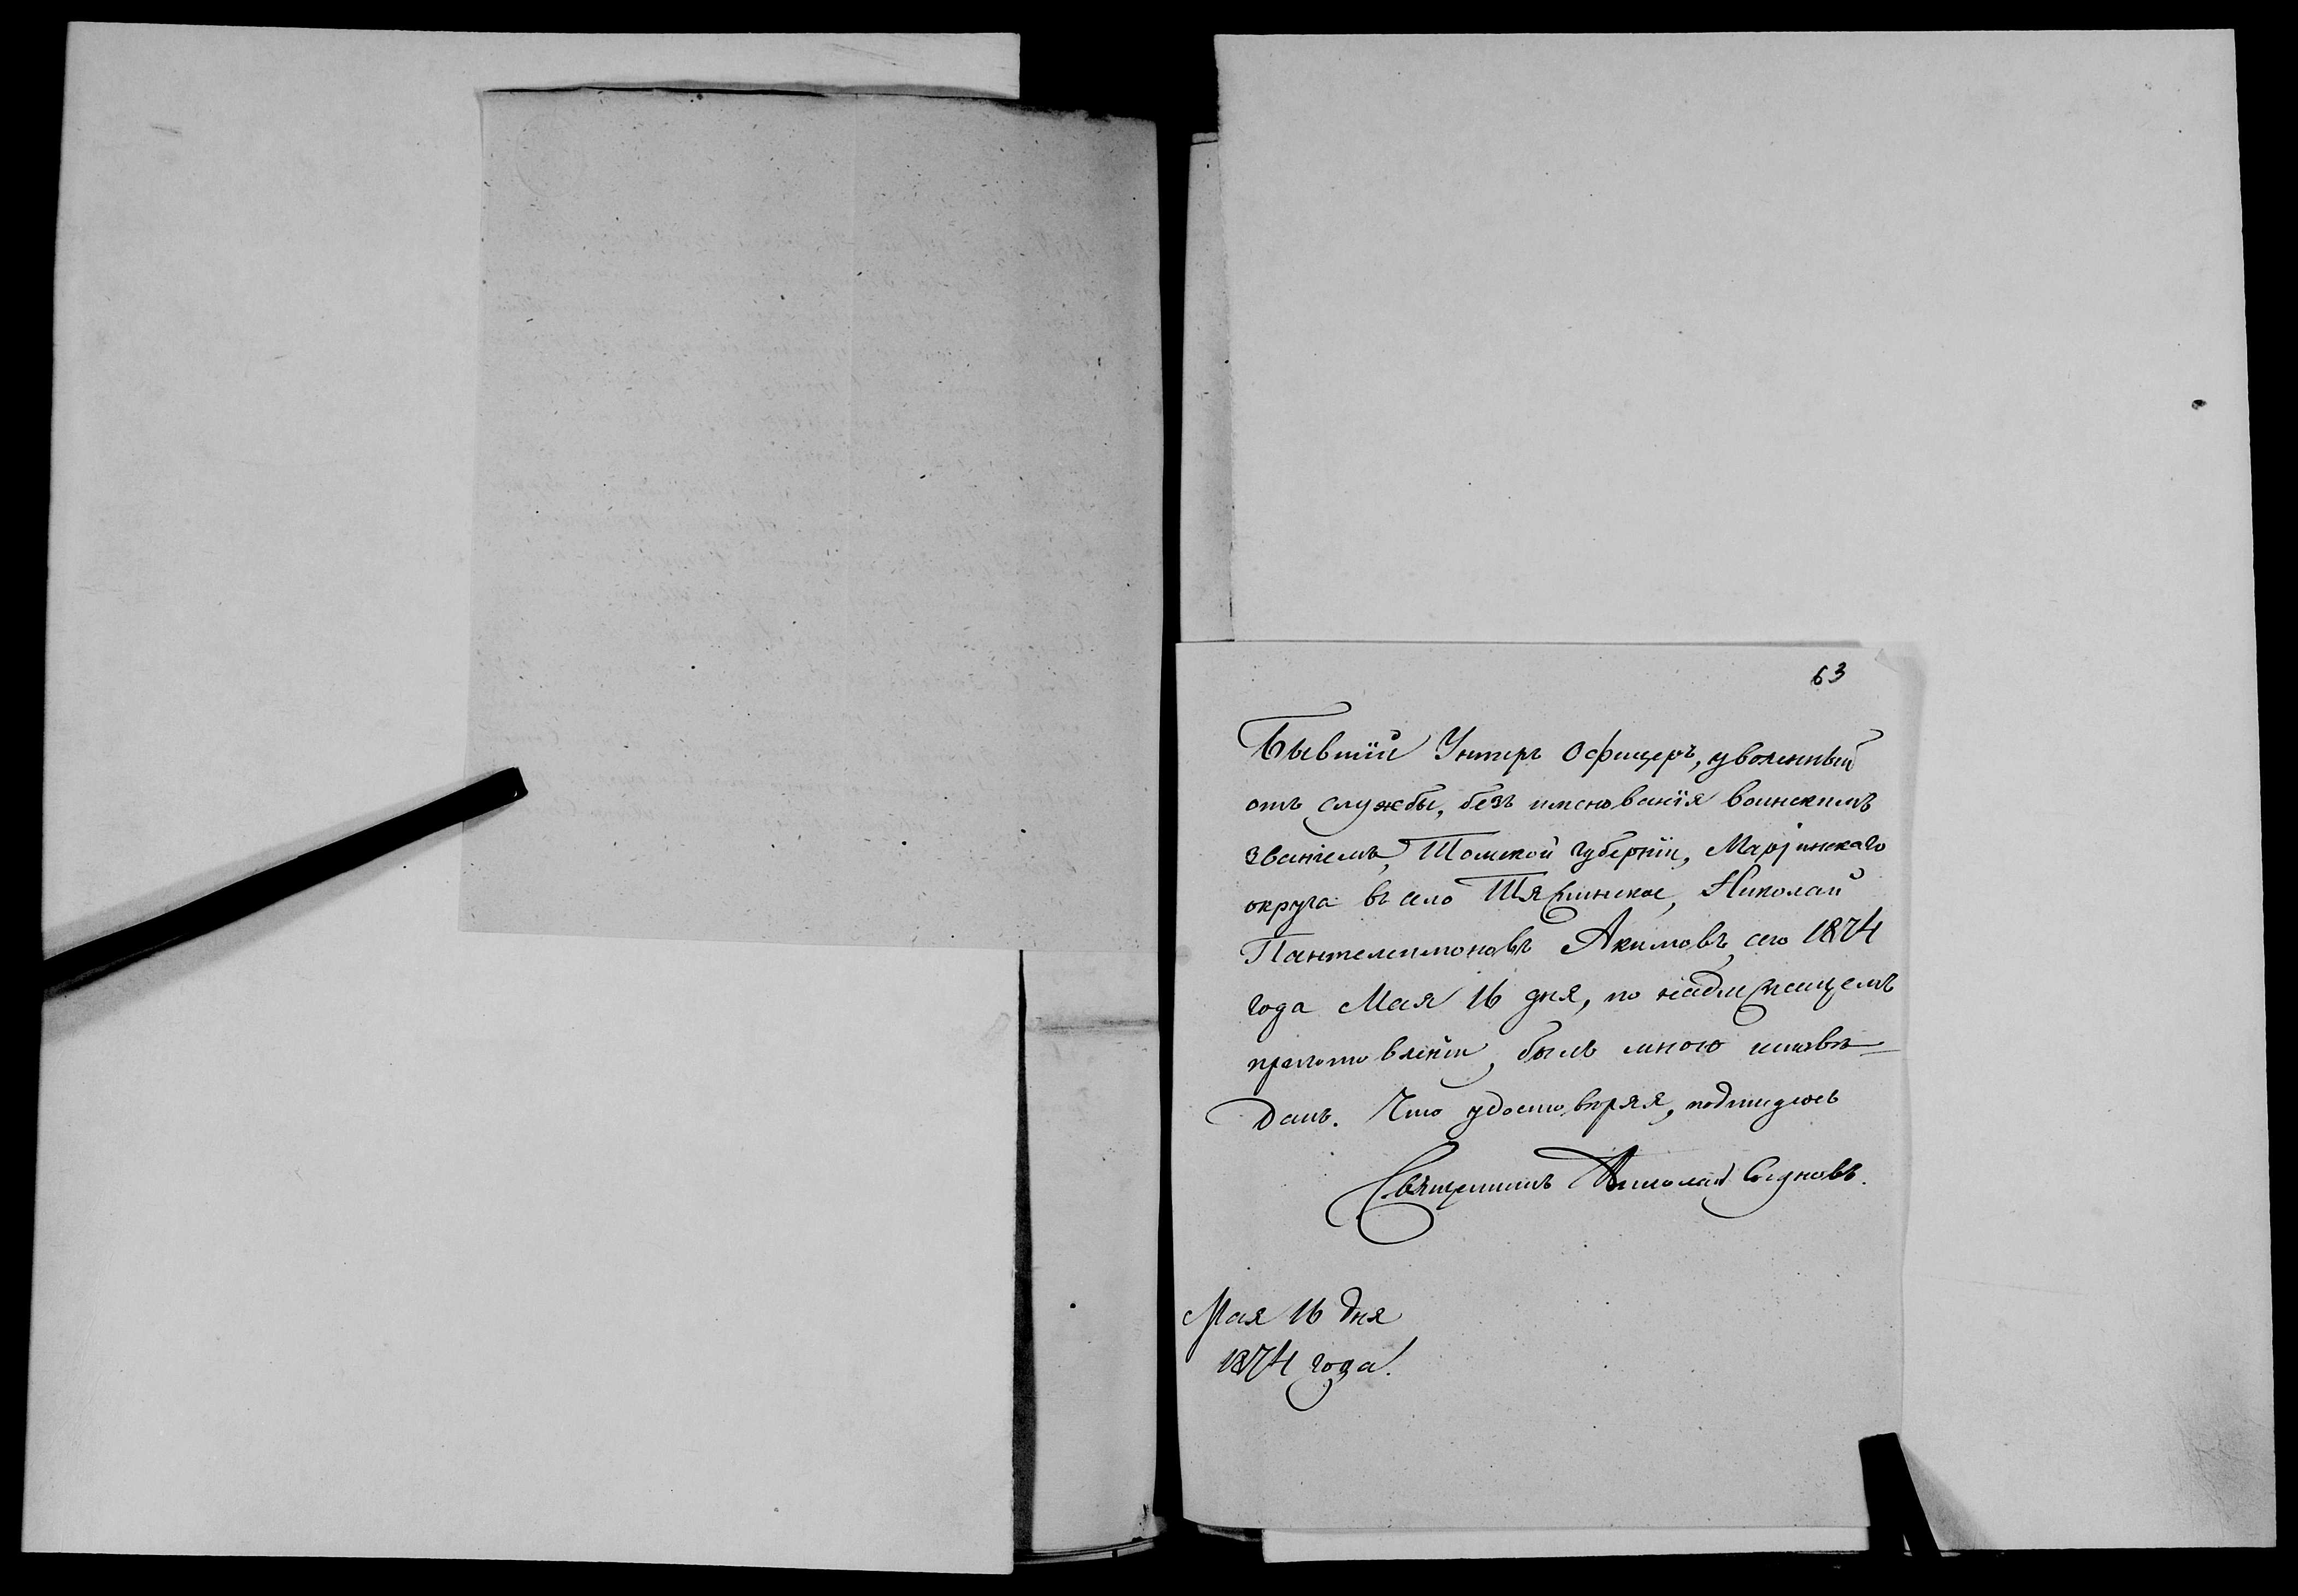 63
Бывшій Унтеръ Офицеръ, уволенный
отъ службы, безъ именованія воинскимъ
званіемъ, Томской губерніи, Маріинскаго
округа въ село Тяжинское, Николай
Пантелеимоновъ Акимовъ, сего 1874
года Мая 16 дня, по надлежащемъ
приготовленіи, былъ мною исповѣ-
данъ. Что удостовѣряя, подпишуюсь
Священникъ Николай
Мая 16 дня
1874 года.